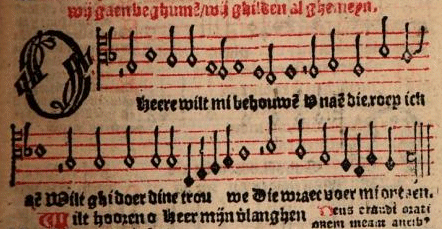 wij gaen beghinnē / wij ghilden al ghemeyn.
O heere wilt mi behouwē v naē die roep ick
aē Wilt ghi doer dine trou we Die wraec voer mi ontfaen.
Wilt hooren o heer mijn vlanghen
Deus exaudi orati
onem meam aurib⁹